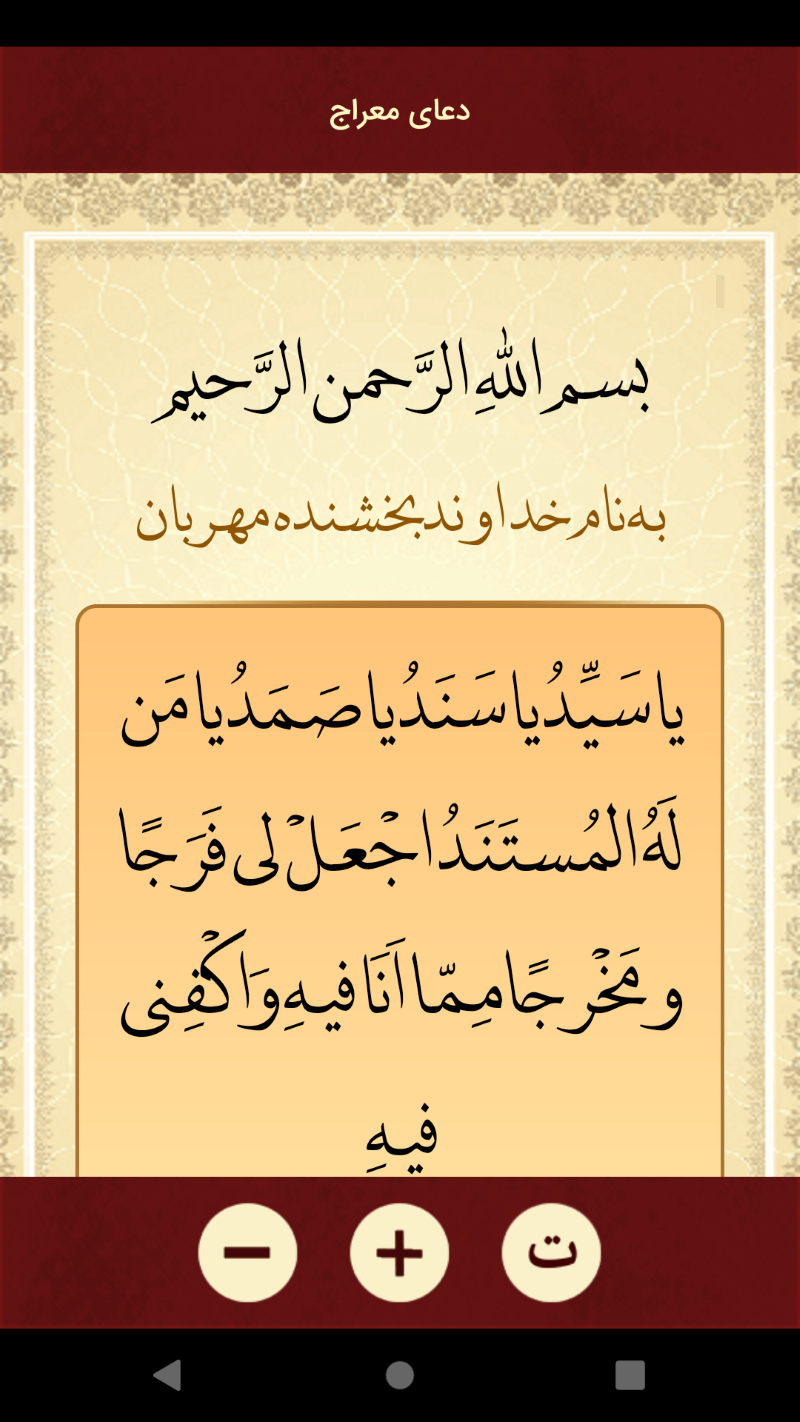 دعای معراج
بسم اللهِ الرَّحمن الرَّحیم
به نام خداوند بخشنده مهربان
یا سَیِّدُ یا سَنَدُ یا صَمَدُ یا مَن
لَهُ المُستَنَدُ اجْعَلْ لی فَرَجًا
و مَخْرجًا مِمّا اَنَا فیهِ وَ اکْفِنی
فیهِ
ت
+
−